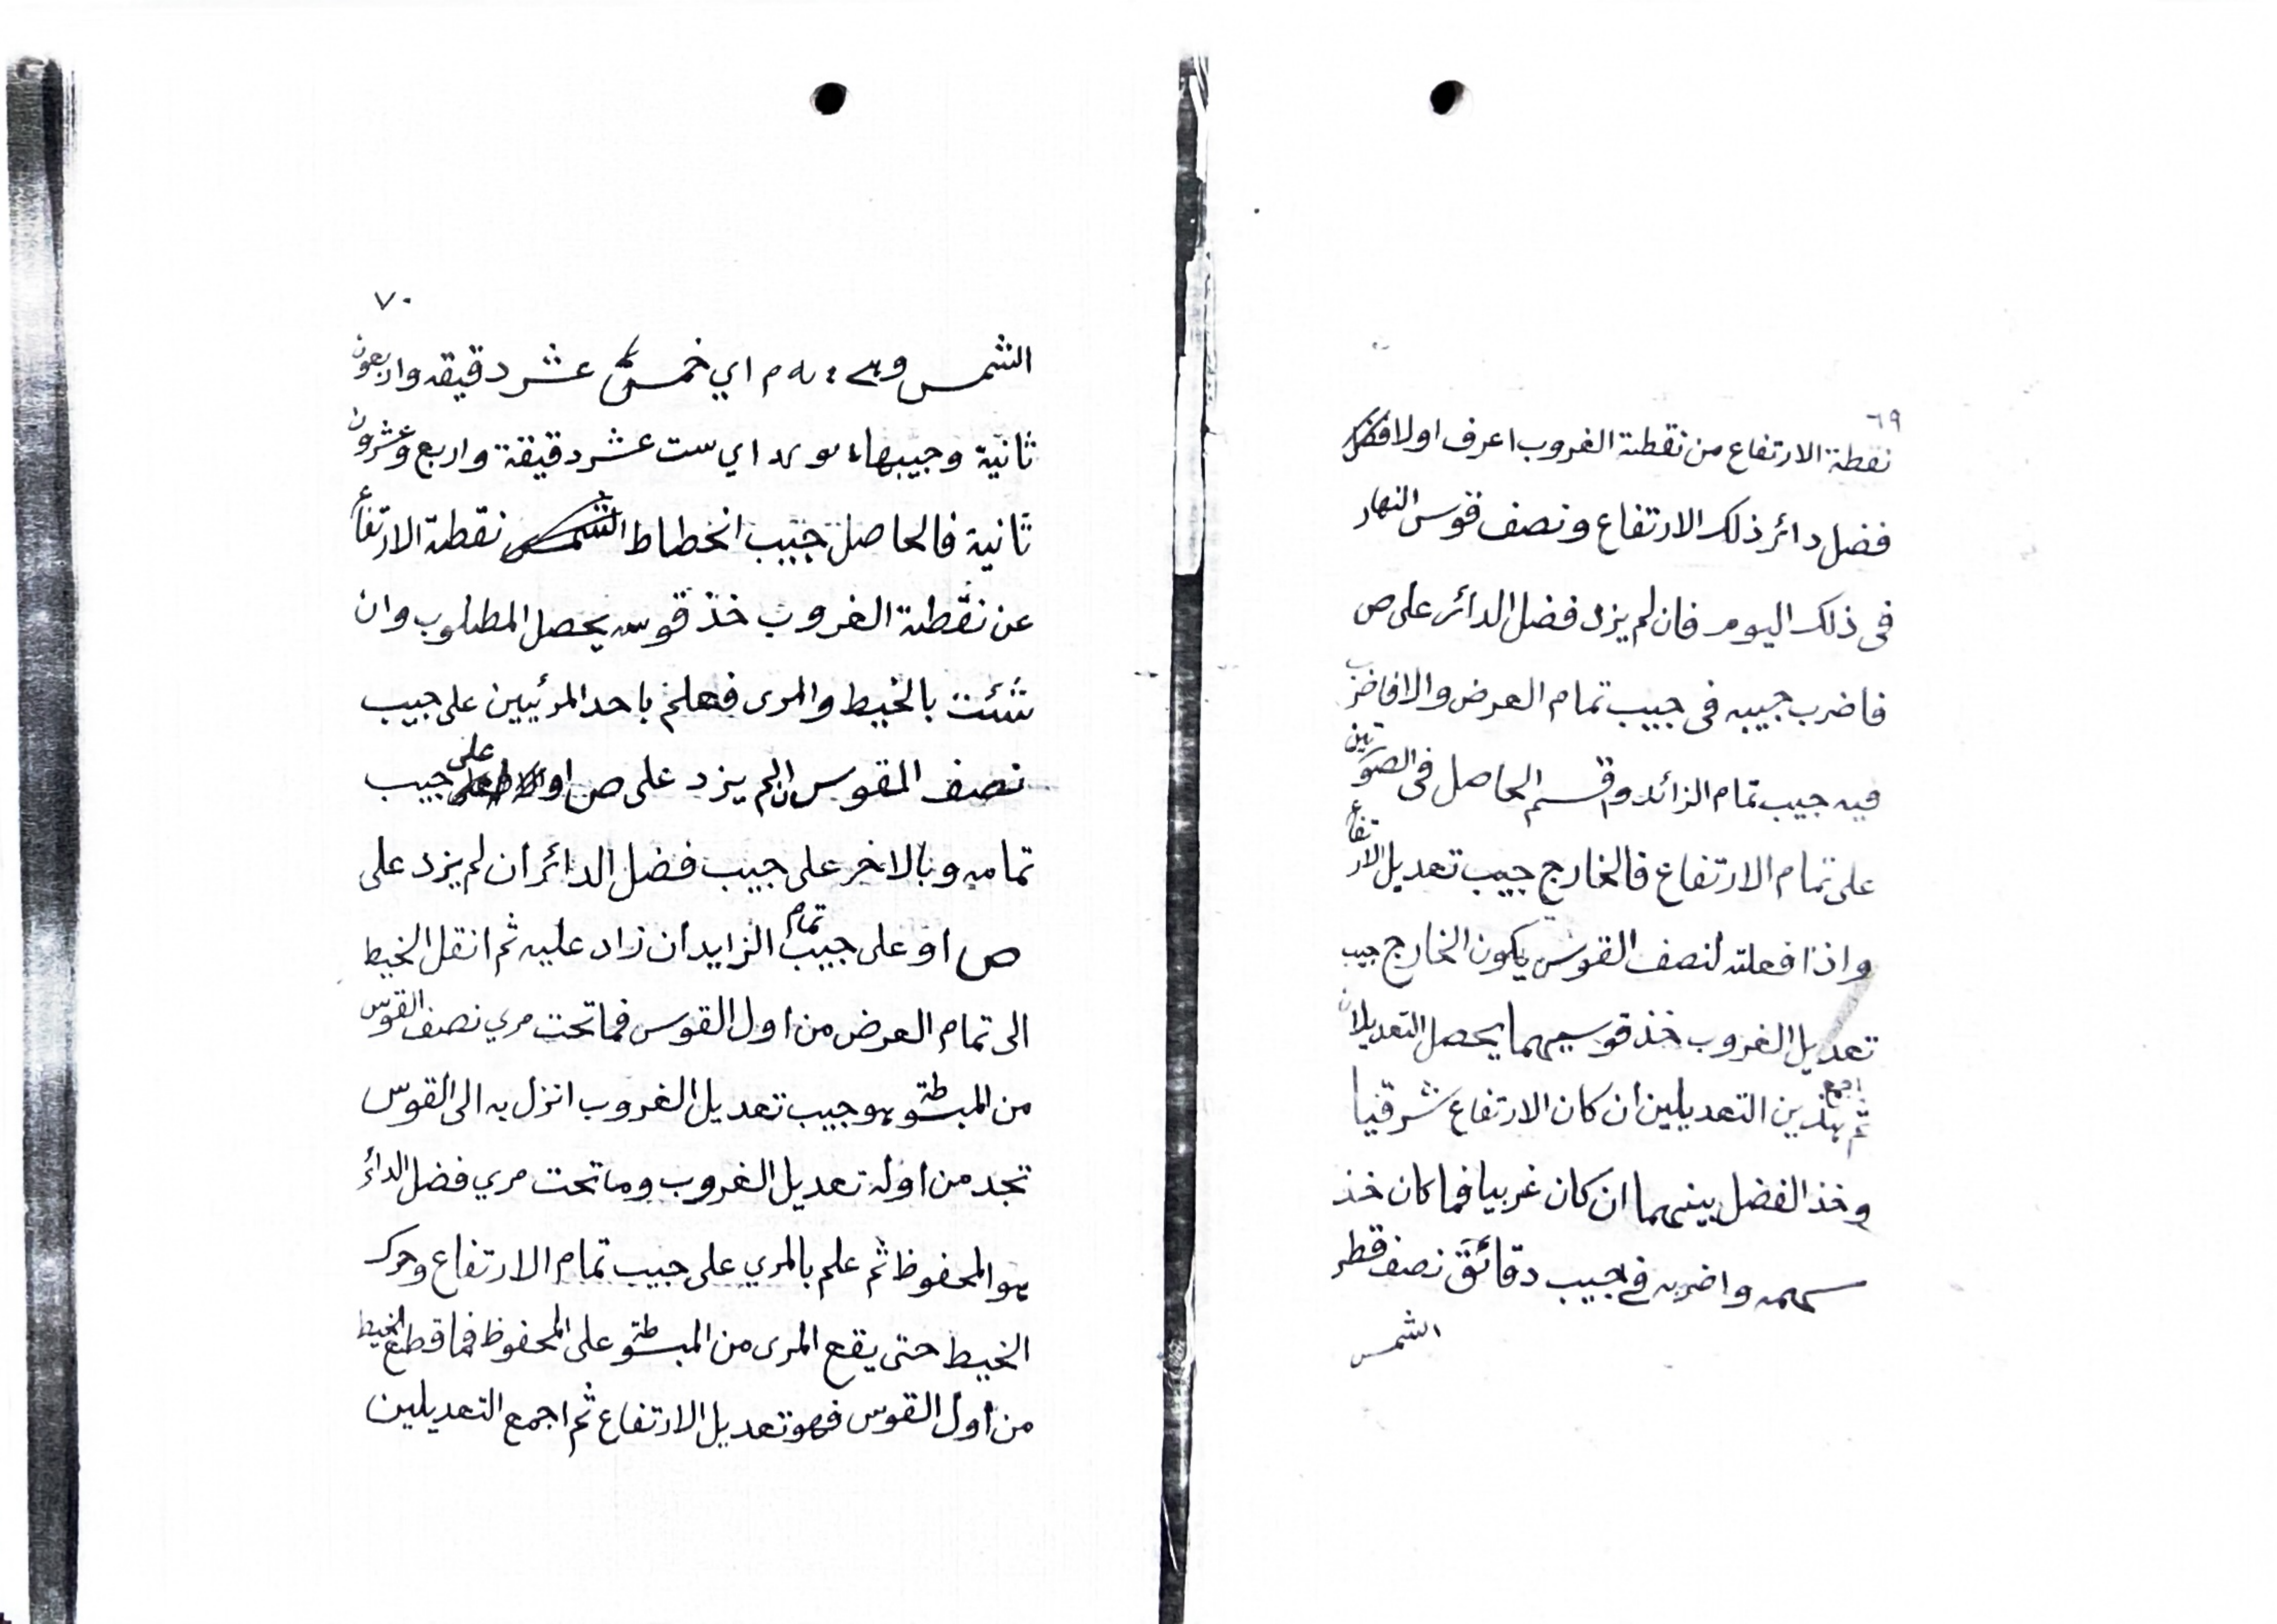 ٦٩
نقطة الارتفاع من نقطة الغروب اعرف اولا
فضل دائر ذلك الارتفاع ونصف قوس النهار
فى ذلك اليوم فان لم يزد فضل الدائر على ص
فاضرب جيبه فى جيب تمام العرض والا فاضرب
فيه جيب تمام الزائد واقسم الحاصل فى الصورتين
على تمام الارتفاع فالخارج جيب تعديل الارتفاع
واذا فعلته لنصف القوس يكون الخارج جيب
تعديل الغروب خذ قوسيهما يحصل التعديلان
ثم اجمع هذين التعديلين ان كان الارتفاع شرقيا
وخذ الفضل بينهما ان كان غربيا فما كان خذ
سهمه واضربه في جيب دقائق نصف قطر
الشمس
٧٠
الشمس وهي ه م اي خمس عشر دقيقه واربعون
ثانية وجيبها يو كد اي ست عشر دقيقة واربع وعشرون
ثانية فالحاصل جيب انحطاط نقطة الارتفاع
عن نقطة الغروب خذ قوسه يحصل المطلوب وان
شئت بالخيط والمرى فعلم باحد المرئيين على جيب
نصف القوس ان لم يزد على ص او على جيب
تمامه وبالاخر على جيب فضل الدائر ان لم يزد على
ص او على جيب تمام الزايد ان زاد عليه ثم انقل الخيط
الى تمام العرض من اول القوس فما تحت مري نصف القوس
من المبسوطة هو جيب تعديل الغروب انزل به الى القوس
تجد من اوله تعديل الغروب وما تحت مري فضل الدائر
هو المحفوظ ثم علم بالمري على جيب تمام الارتفاع وحرك
الخيط حتى يقع المرى من المبسوطة على المحفوظ فما قطع الخيط
من اول القوس فهو تعديل الارتفاع ثم اجمع التعديلين